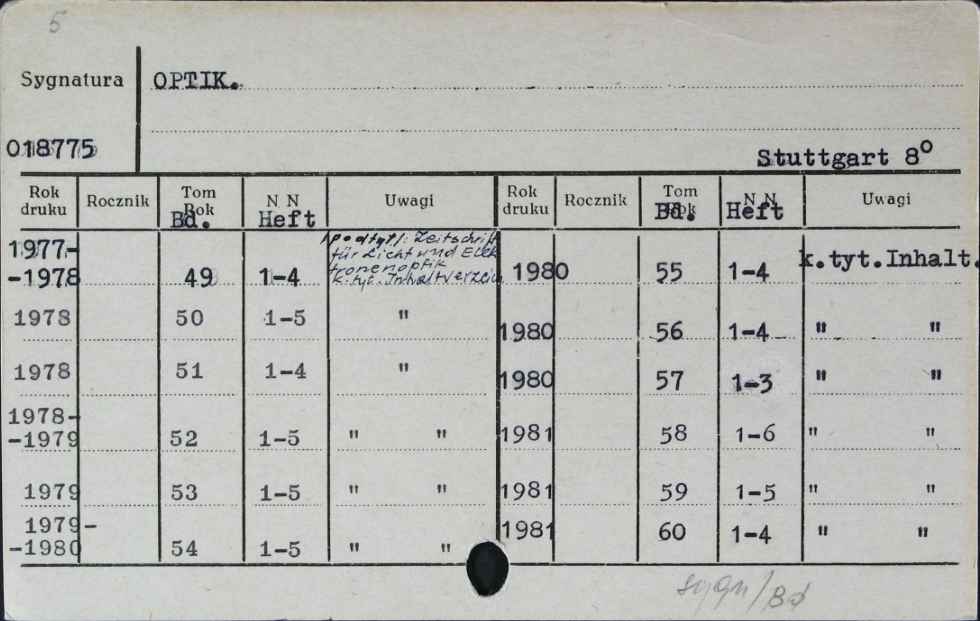 5
Sygnatura OPTIK.
018775 Stuttgart 8°
Rok druku Rocznik Tom Rok Bd. N N Heft Uwagi Rok druku Rocznik Tom Rok Bd. N N Heft Uwagi
1977-
-1978 49 1-4 /podtyt/: Zeitschrift
für Licht und Elek
tronenoptik
k.tyt. Inhaltverzeich
1980 55 1-4 k.tyt.Inhalt.
1978 50 1-5 "
1980 56 1-4 " "
1978 51 1-4 "
1980 57 1-3 " "
1978-
-1979 52 1-5 " "
1981 58 1-6 " "
1979 53 1-5 " "
1981 59 1-5 " "
1979-
-1980 54 1-5 " "
1981 60 1-4 " "
sygn/Bd